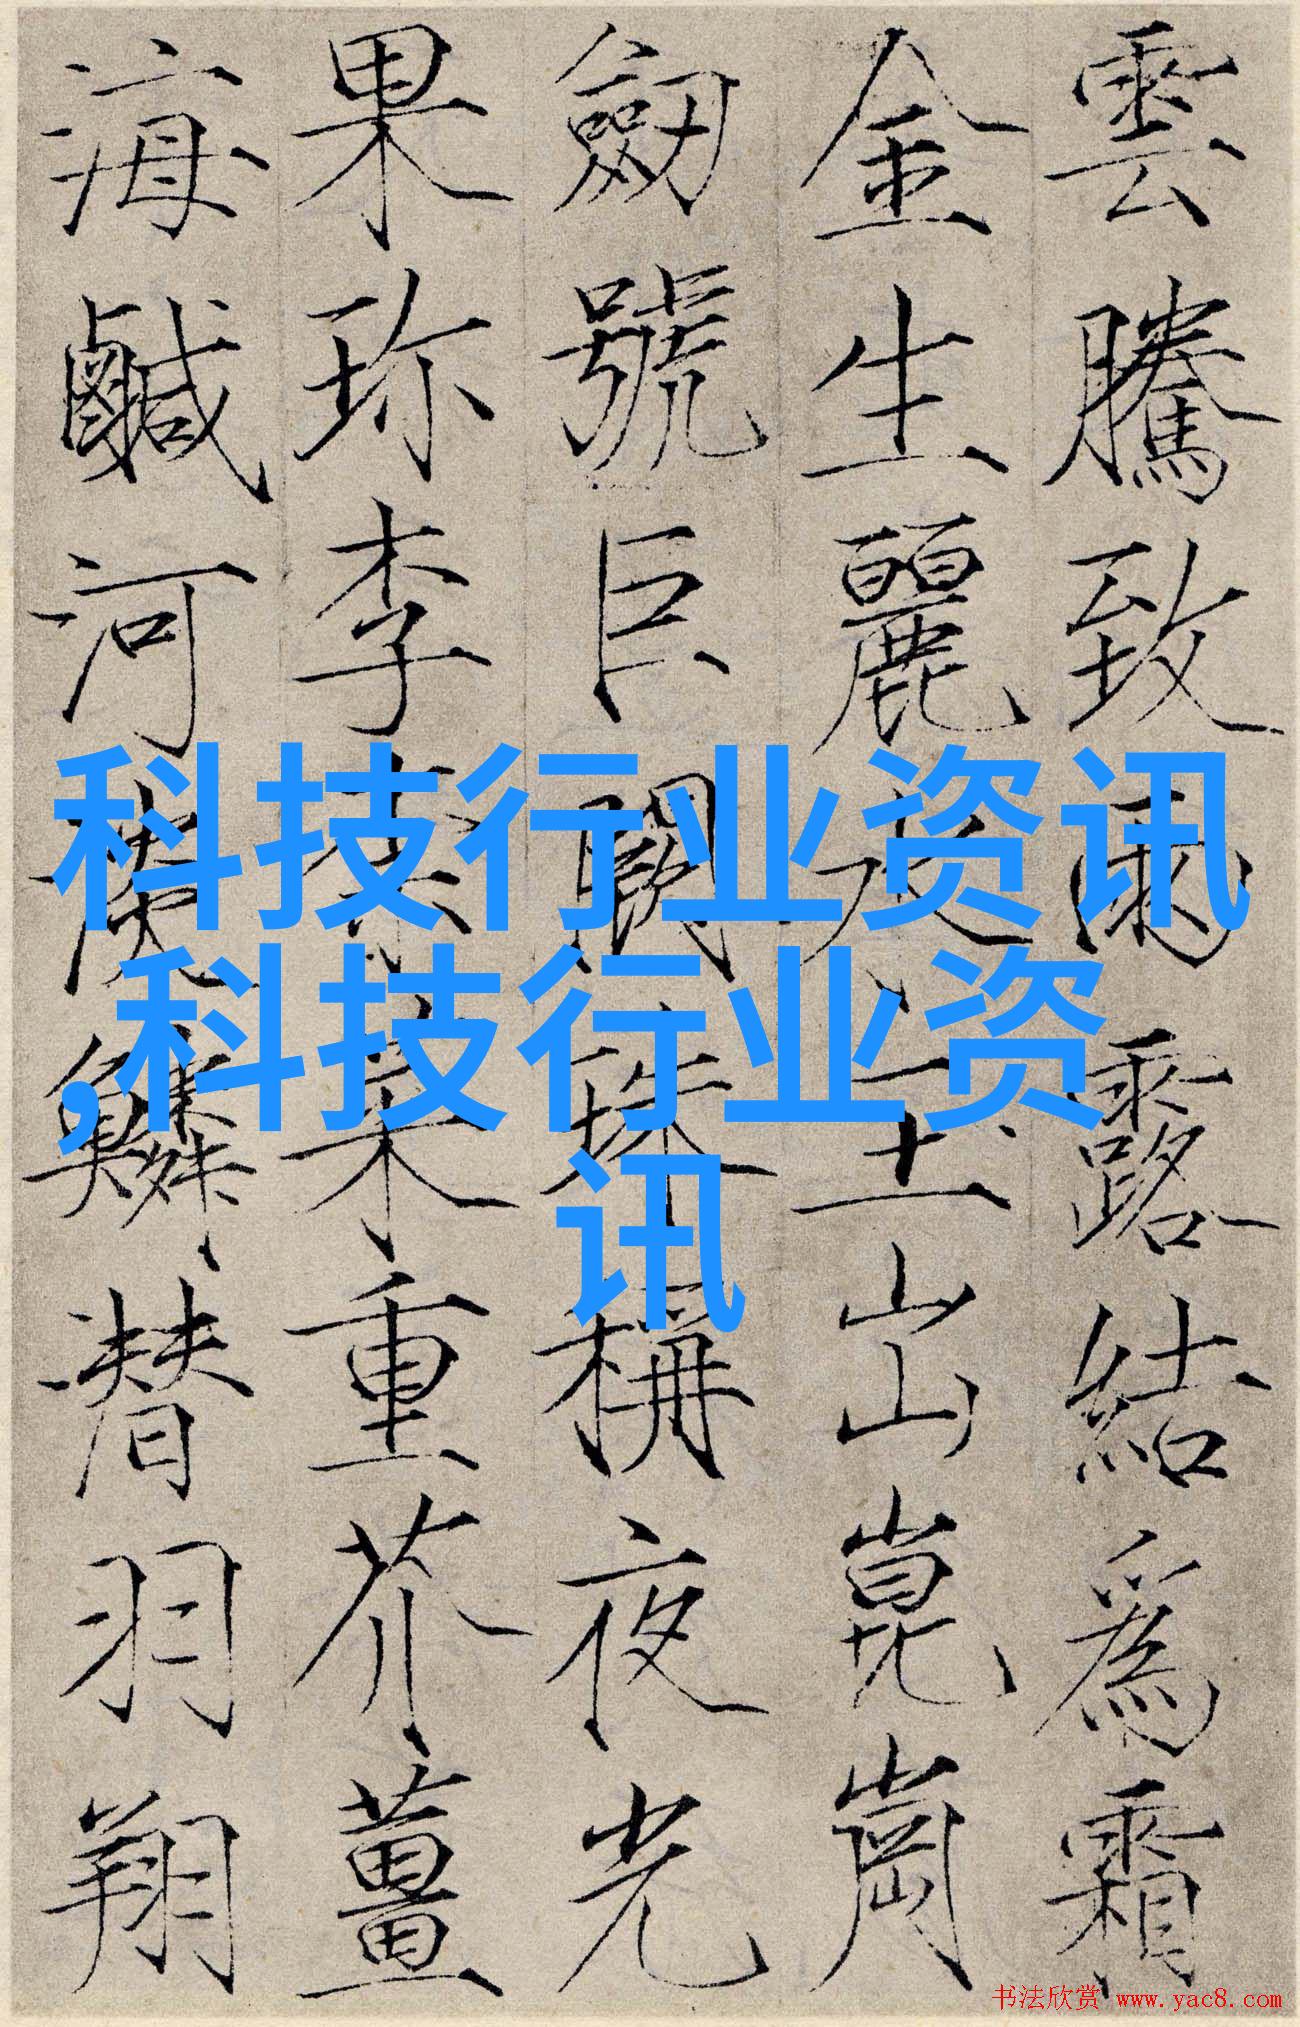 雲騰致雨露結爲霜
金生麗水玉出崑崗
劒號巨闕珠稱夜光
果珎李柰菜重芥薑
海鹹河淡鱗潛羽翔
科技行业资讯
,科技行业资
讯
书法欣赏 www.yac8.com